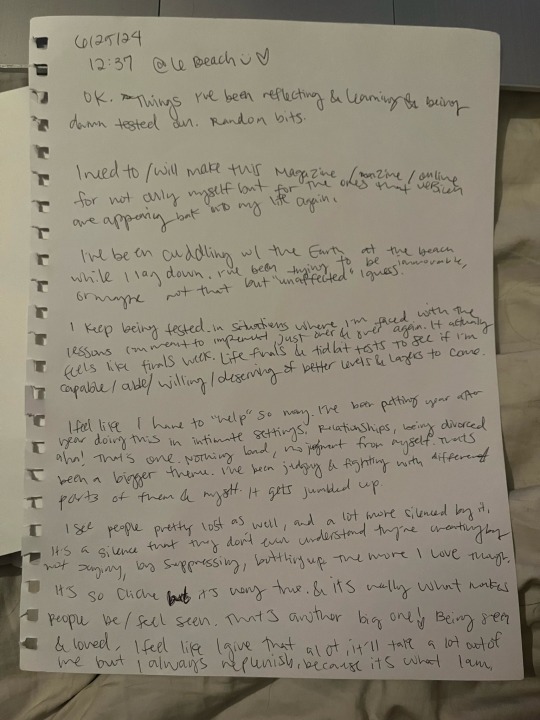 6/25/24
12:37 @ Le Beach
OK. Things I've been reflecting & learning & being
damn tested on. Random bits.
I need to / will make this Magazine / / online
for not only myself but for the ones that
are appearing back into my life again.
I've been cuddling w/ the Earth at the beach
while I lay down. I've been trying to be immovable,
or maybe not that but "unaffected" I guess.
I keep being tested in situations where I'm faced with the
lessons meant to implement just over & over again. It actually
feels like finals week. Life finals & tidbit tests to see if I'm
capable / able / willing / deserving of better levels & layers to come.
I feel like I have to "help" so many. I've been year after
year doing this in intimate settings, relationships, being divorced
aha! That's one. Nothing bad, no judgment from myself. That's
been a bigger theme. I've been judging & fighting with different
parts of them & myself. It gets jumbled up.
I see people pretty lost as well, and a lot more silenced by it.
It's a silence that they don't even understand they're creating by
not saying, by suppressing, bottling up the more I love though.
It's so cliche but it's very true. & it's really what makes
people be / feel seen. That's another big one! Being seen
& loved. I feel like I give that a lot, it'll take a lot out of
me but I always replenish, because it's what I am,